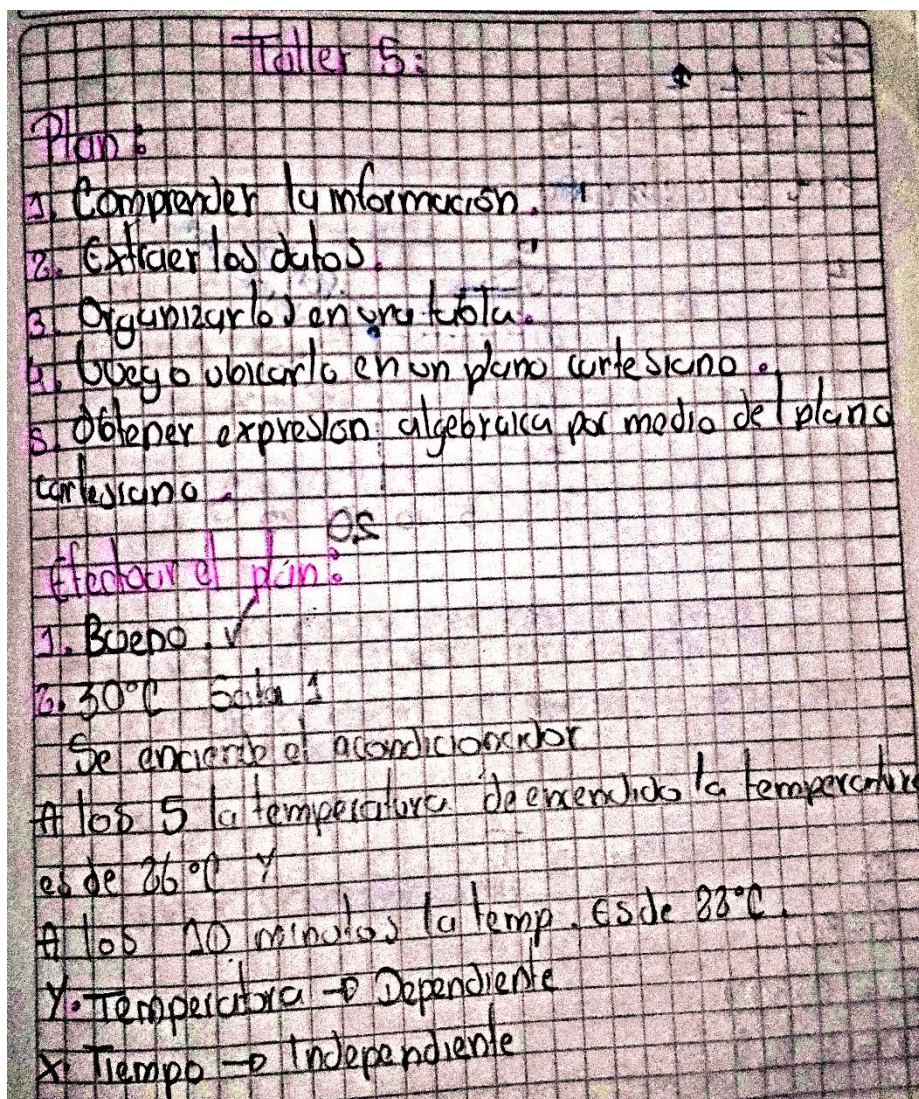 Taller 5:
Plan:
1. Comprender la información.
2. Extraer los datos.
3. Organizarlos en una tabla.
4. Luego ubicarlo en un plano cartesiano.
5. Obtener expresion algebraica por medio del plano
cartesiano.
Efectuar el plan:
1. Bueno. ✓
2. 30°C Sala 1
Se enciende el acondicionador
A los 5 la temperatura de encendido la temperatura
es de 26°C y
A los 10 minutos la temp. es de 22°C.
Y. Temperatura → Dependiente
X. Tiempo → Independiente